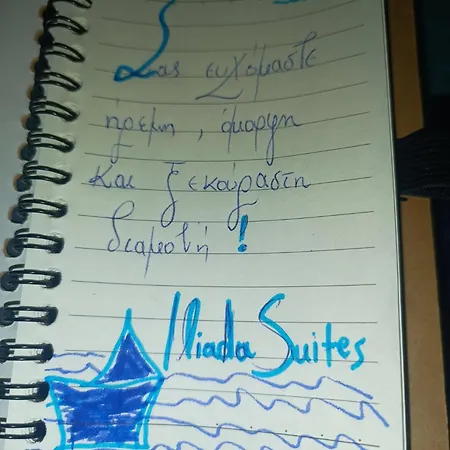 Σας ευχόμαστε
ήρεμη, όμορφη
και ξεκούραστη
διαμονή!
Iliada Suites